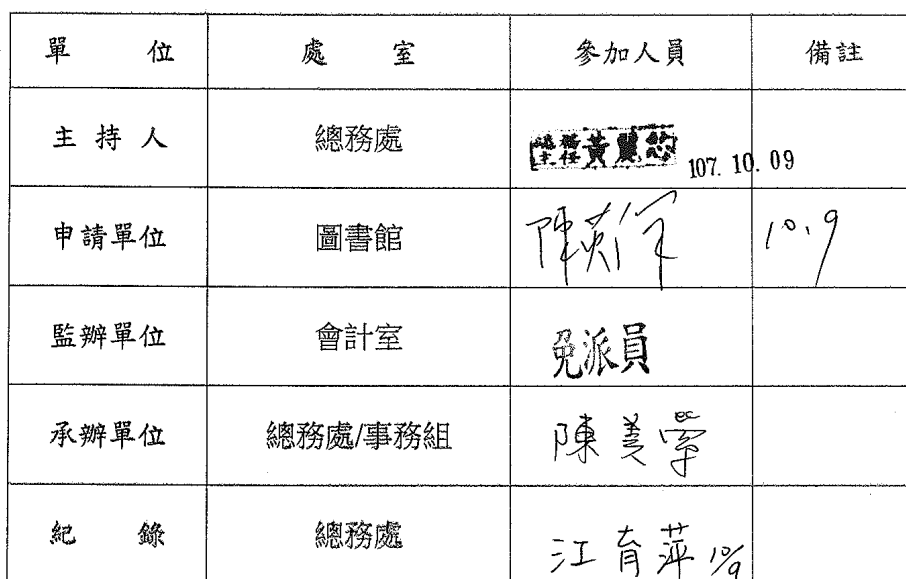 單 位 處 室 參加人員 備註
主 持 人 總務處 總務主任 黃麗 107. 10. 09
申請單位 圖書館 陳 10.9
監辦單位 會計室 免派員
承辦單位 總務處/事務組 陳美
紀 錄 總務處 江育萍 10/9